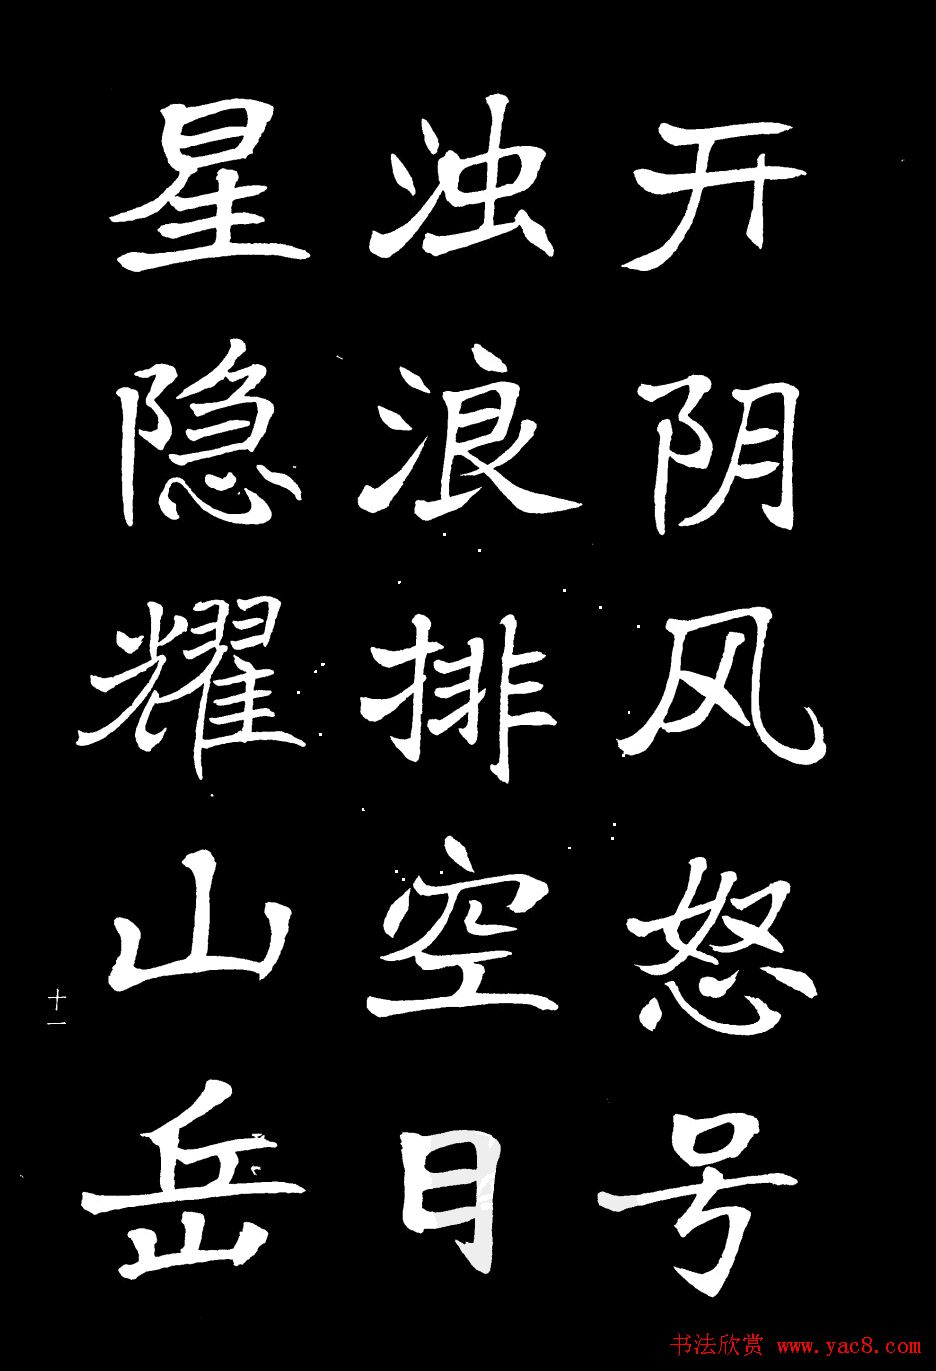 开阴风怒号
浊浪排空日
星隐耀山岳
十一
书法欣赏 www.yac8.com